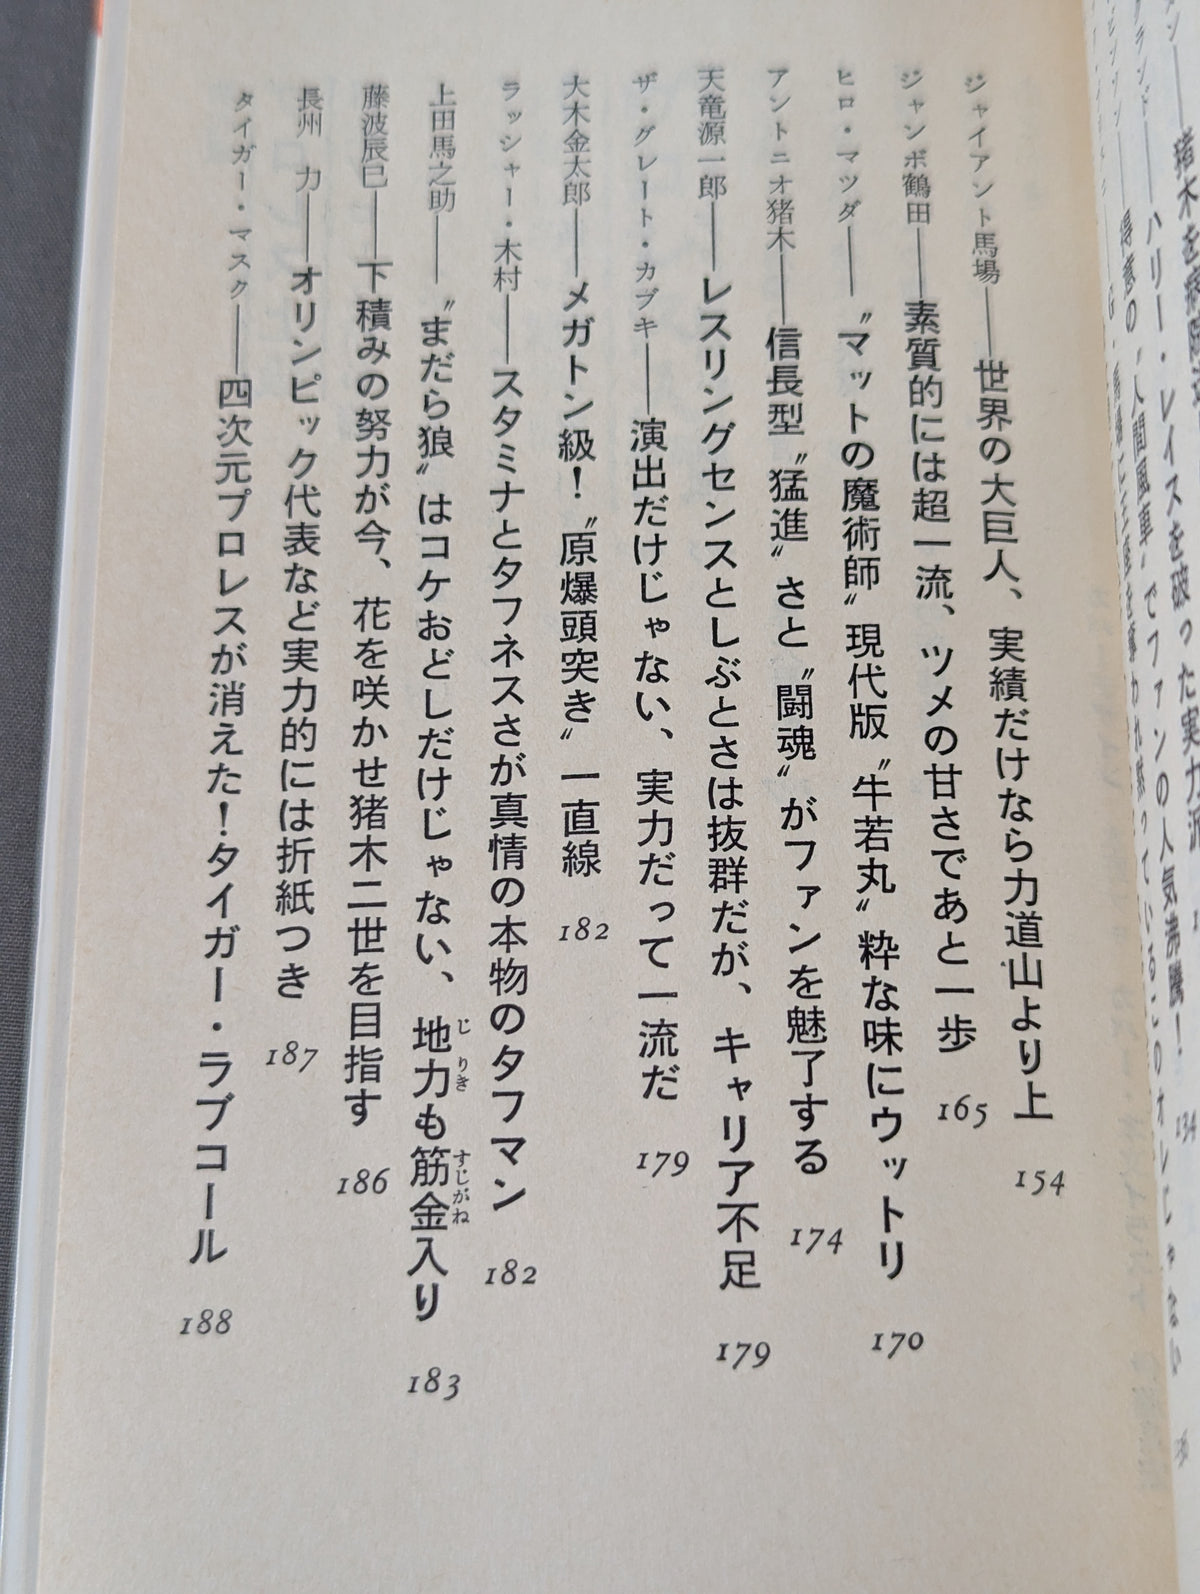 ハリー・レイスを破った実力派
ジャイアント馬場――世界の大巨人、実績だけなら力道山より上 154
ジャンボ鶴田――素質的には超一流、ツメの甘さであと一歩 165
ヒロ・マツダ――〝マットの魔術師〟現代版〝牛若丸〟粋な味にウットリ 170
アントニオ猪木――信長型〝猛進〟さと〝闘魂〟がファンを魅了する 174
天竜源一郎――レスリングセンスとしぶとさは抜群だが、キャリア不足 179
ザ・グレート・カブキ――演出だけじゃない、実力だって一流だ 179
大木金太郎――メガトン級!〝原爆頭突き〟一直線 182
ラッシャー・木村――スタミナとタフネスさが真情の本物のタフマン 182
上田馬之助――〝まだら狼〟はコケおどしだけじゃない、地力も筋金入り 183
じりき すじがね
藤波辰巳――下積みの努力が今、花を咲かせ猪木二世を目指す 186
長州 力――オリンピック代表など実力的には折紙つき 187
タイガー・マスク――四次元プロレスが消えた!タイガー・ラブコール 188